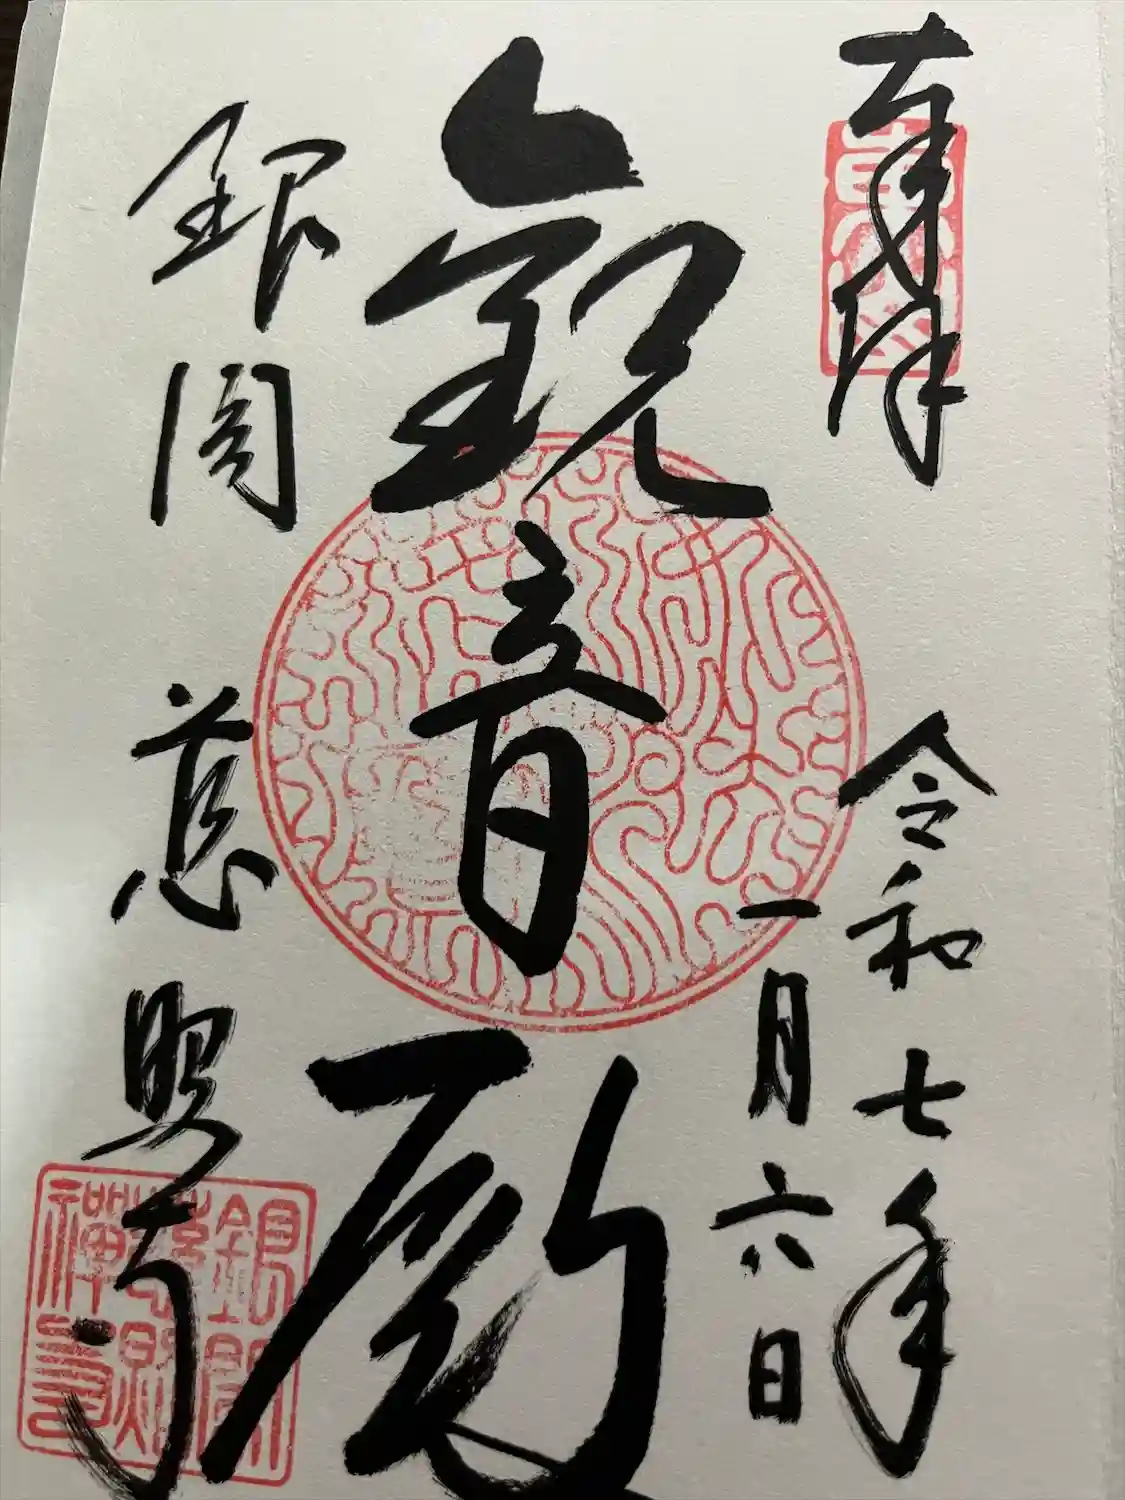 奉拝
令和七年
一月六日
観音殿
銀閣 慈照寺
東山
銀閣
慈照
禅寺